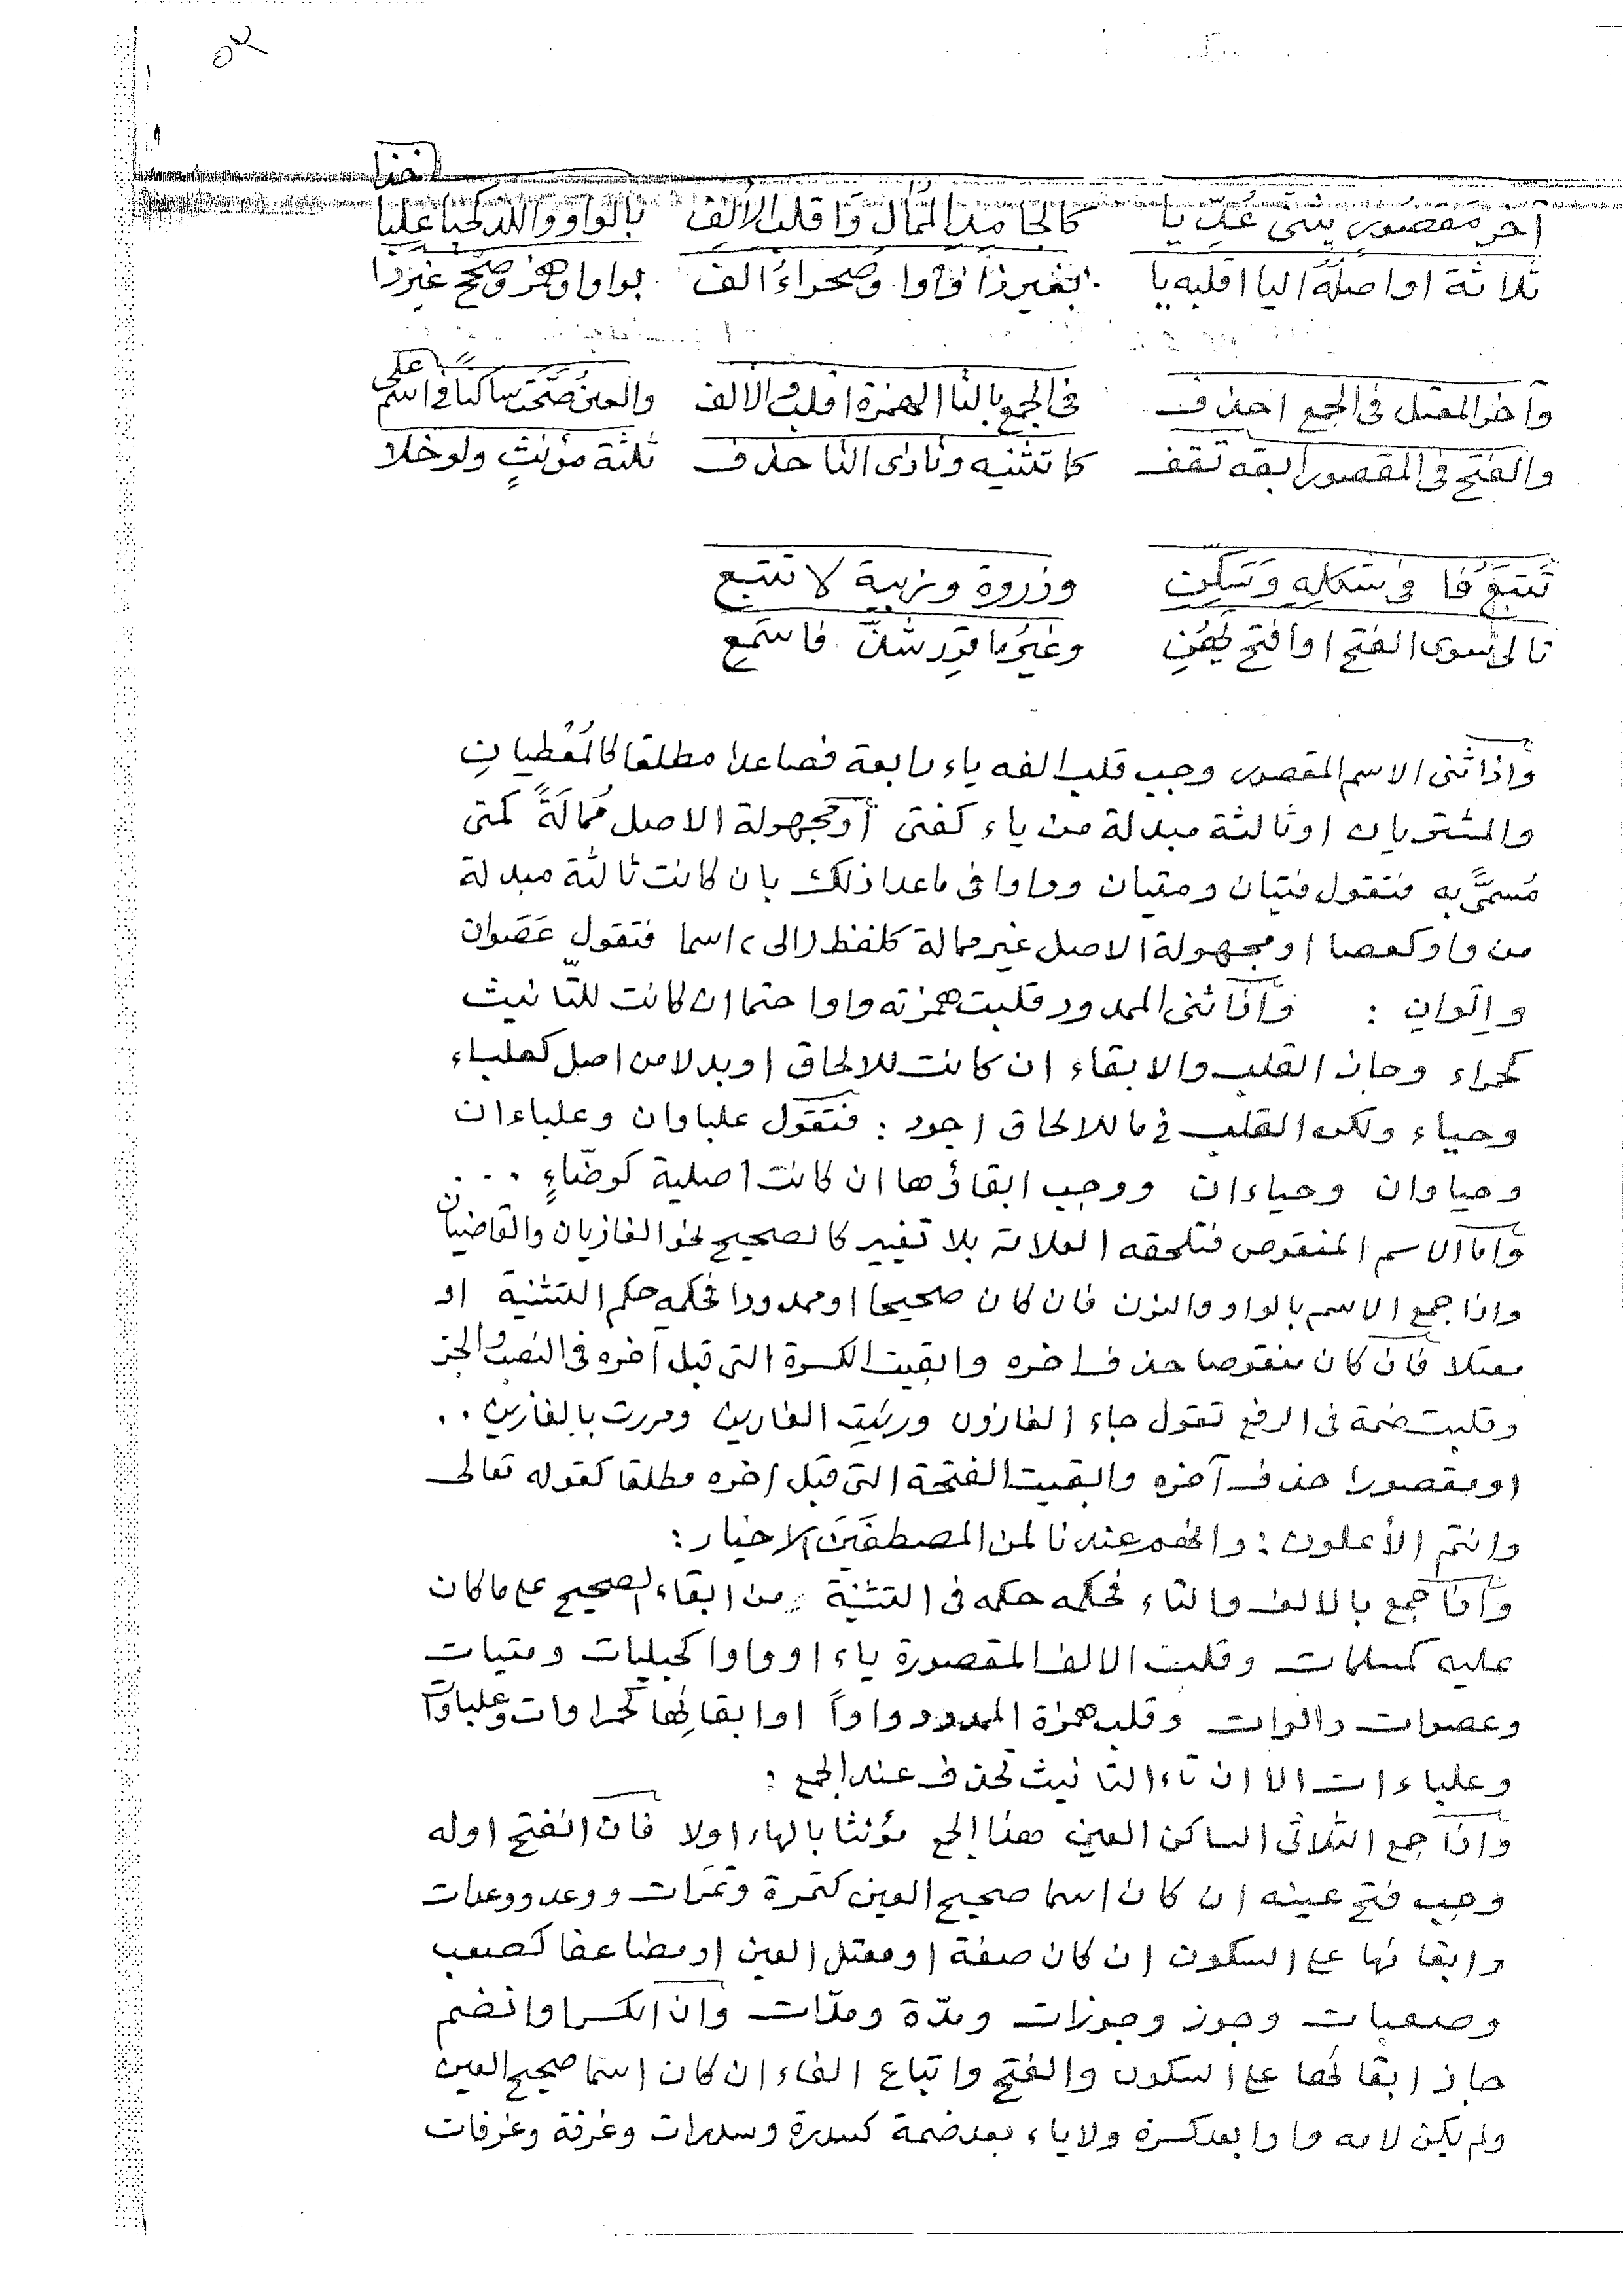 ٥٣
آخر مقصور يثنى عُدّ يا كالجامد الممال واقلب الألف بالواو واللذ كحيا علبا اخذا
ثلاثة او اصله اليا اقلبه يا بغير ذا واوا وصحراء الف بواو او همز وصحح غير ذا
وآخر المعتل فى الجمع احذف فى الجمع بالتا الهمزة اقلب والالف والعين صحّت ساكنا فى اسم على
والفتح فى المقصور ابقه تقف كا تثنيه وتا ذى التا حذف ثلثة مؤنثٍ ولو خلا
تتبع فا فى شكلِه وَسَكِّن وذروة وزبية لا تتبع
تالى سوى الفتح او افتح يَهُنِ وغيرُ ما قرر شذّ فاستمع
واذا ثنى الاسم المقصور وجب قلب الفه ياء رابعة فصاعدا مطلقا كالمُعْطيانِ
والمشتريان او ثالثة مبدلة من ياء كفتى أو مجهولة الاصل مُمالَةً كمتى
مُسمَّى به فتقول فتيان ومتيان وواوا فى ماعدا ذلك بان كانت ثالثة مبدلة
من واو كعصا او مجهولة الاصل غير ممالة كلفظ (الى) اسما فتقول عَصَوان
وإلَوانِ : وَاذا ثنى الممدود قلبت همزته واوا حتما ان كانت للتّانيث
كحمراء وجاز القلب والابقاء ان كانت للالحاق او بدلا من اصل كعلباء
وحياء ولكن القلب فى ما للالحاق اجود : فتقول علباوان وعلباءان
وحياوان وحياءان ووجب ابقاؤها ان كانت اصلية كوضّاءٍ ...
وَاما الاسم المنقوص فتلحقه العلامة بلا تغيير كالصحيح نحو الغازيان والقاضيان
واذا جمع الاسم بالواو والنون فان كان صحيحا او ممدودا فحكمه حكم التثنية او
معتلا فان كان منقوصا حذف اخره وابقيت الكسرة التى قبل آخره فى النصب والجرّ
وقلبت ضمة فى الرفع تقول جاء الغازون ورئيت الغازين ومررت بالغازين ..
او مقصورا حذف آخره وابقيت الفتحة التى قبل اخره مطلقا كقوله تعالى
وانتم الأعلون : وانهم عندنا لمن المصطفَيْنَ الاخيار :
وَاذا جمع بالالف والتاء فحكمه حكمه فى التثنية من ابقاء الصحيح على ما كان
عليه كمسلمات وقلب الالف المقصورة ياء او واوا كحبليات ومتيات
وعصوات والوات وقلب همزة الممدود واواً او ابقائِها كحمراوات وعلباوات
وعلباءات الا ان تاء التانيث تحذف عند الجمع :
وَاذا جمع الثلاثى الساكن العين هذا الجمع مؤنثا بالهاء اولا فان انفتح اوله
وجب فتح عينه ان كان اسما صحيح العين كتمرة وتمَرات ووعد ووعدات
وابقائها على السكون ان كان صفة او معتل العين او مضاعفا كصعب
وصعبات وجوز وجوزات ومدّة ومدّات وان انكسر او انضم
جاز ابقائها على السكون والفتح واتباع الفاء ان كان اسما صحيح العين
ولم يكن لامه واوا بعد كسرة ولا ياء بعد ضمة كسدرة وسدرات وغرفة وغرفات